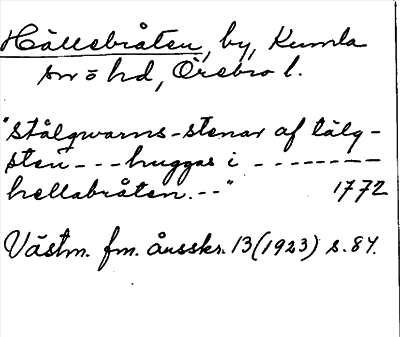 Hällebråten, by, Kumla
sn o hd, Örebro l.
"stålqwarns-stenar af tälg-
sten --- huggas i --------
hellabråten. --" 1772
Västm. fm. årsskr. 13 (1923) s. 84.